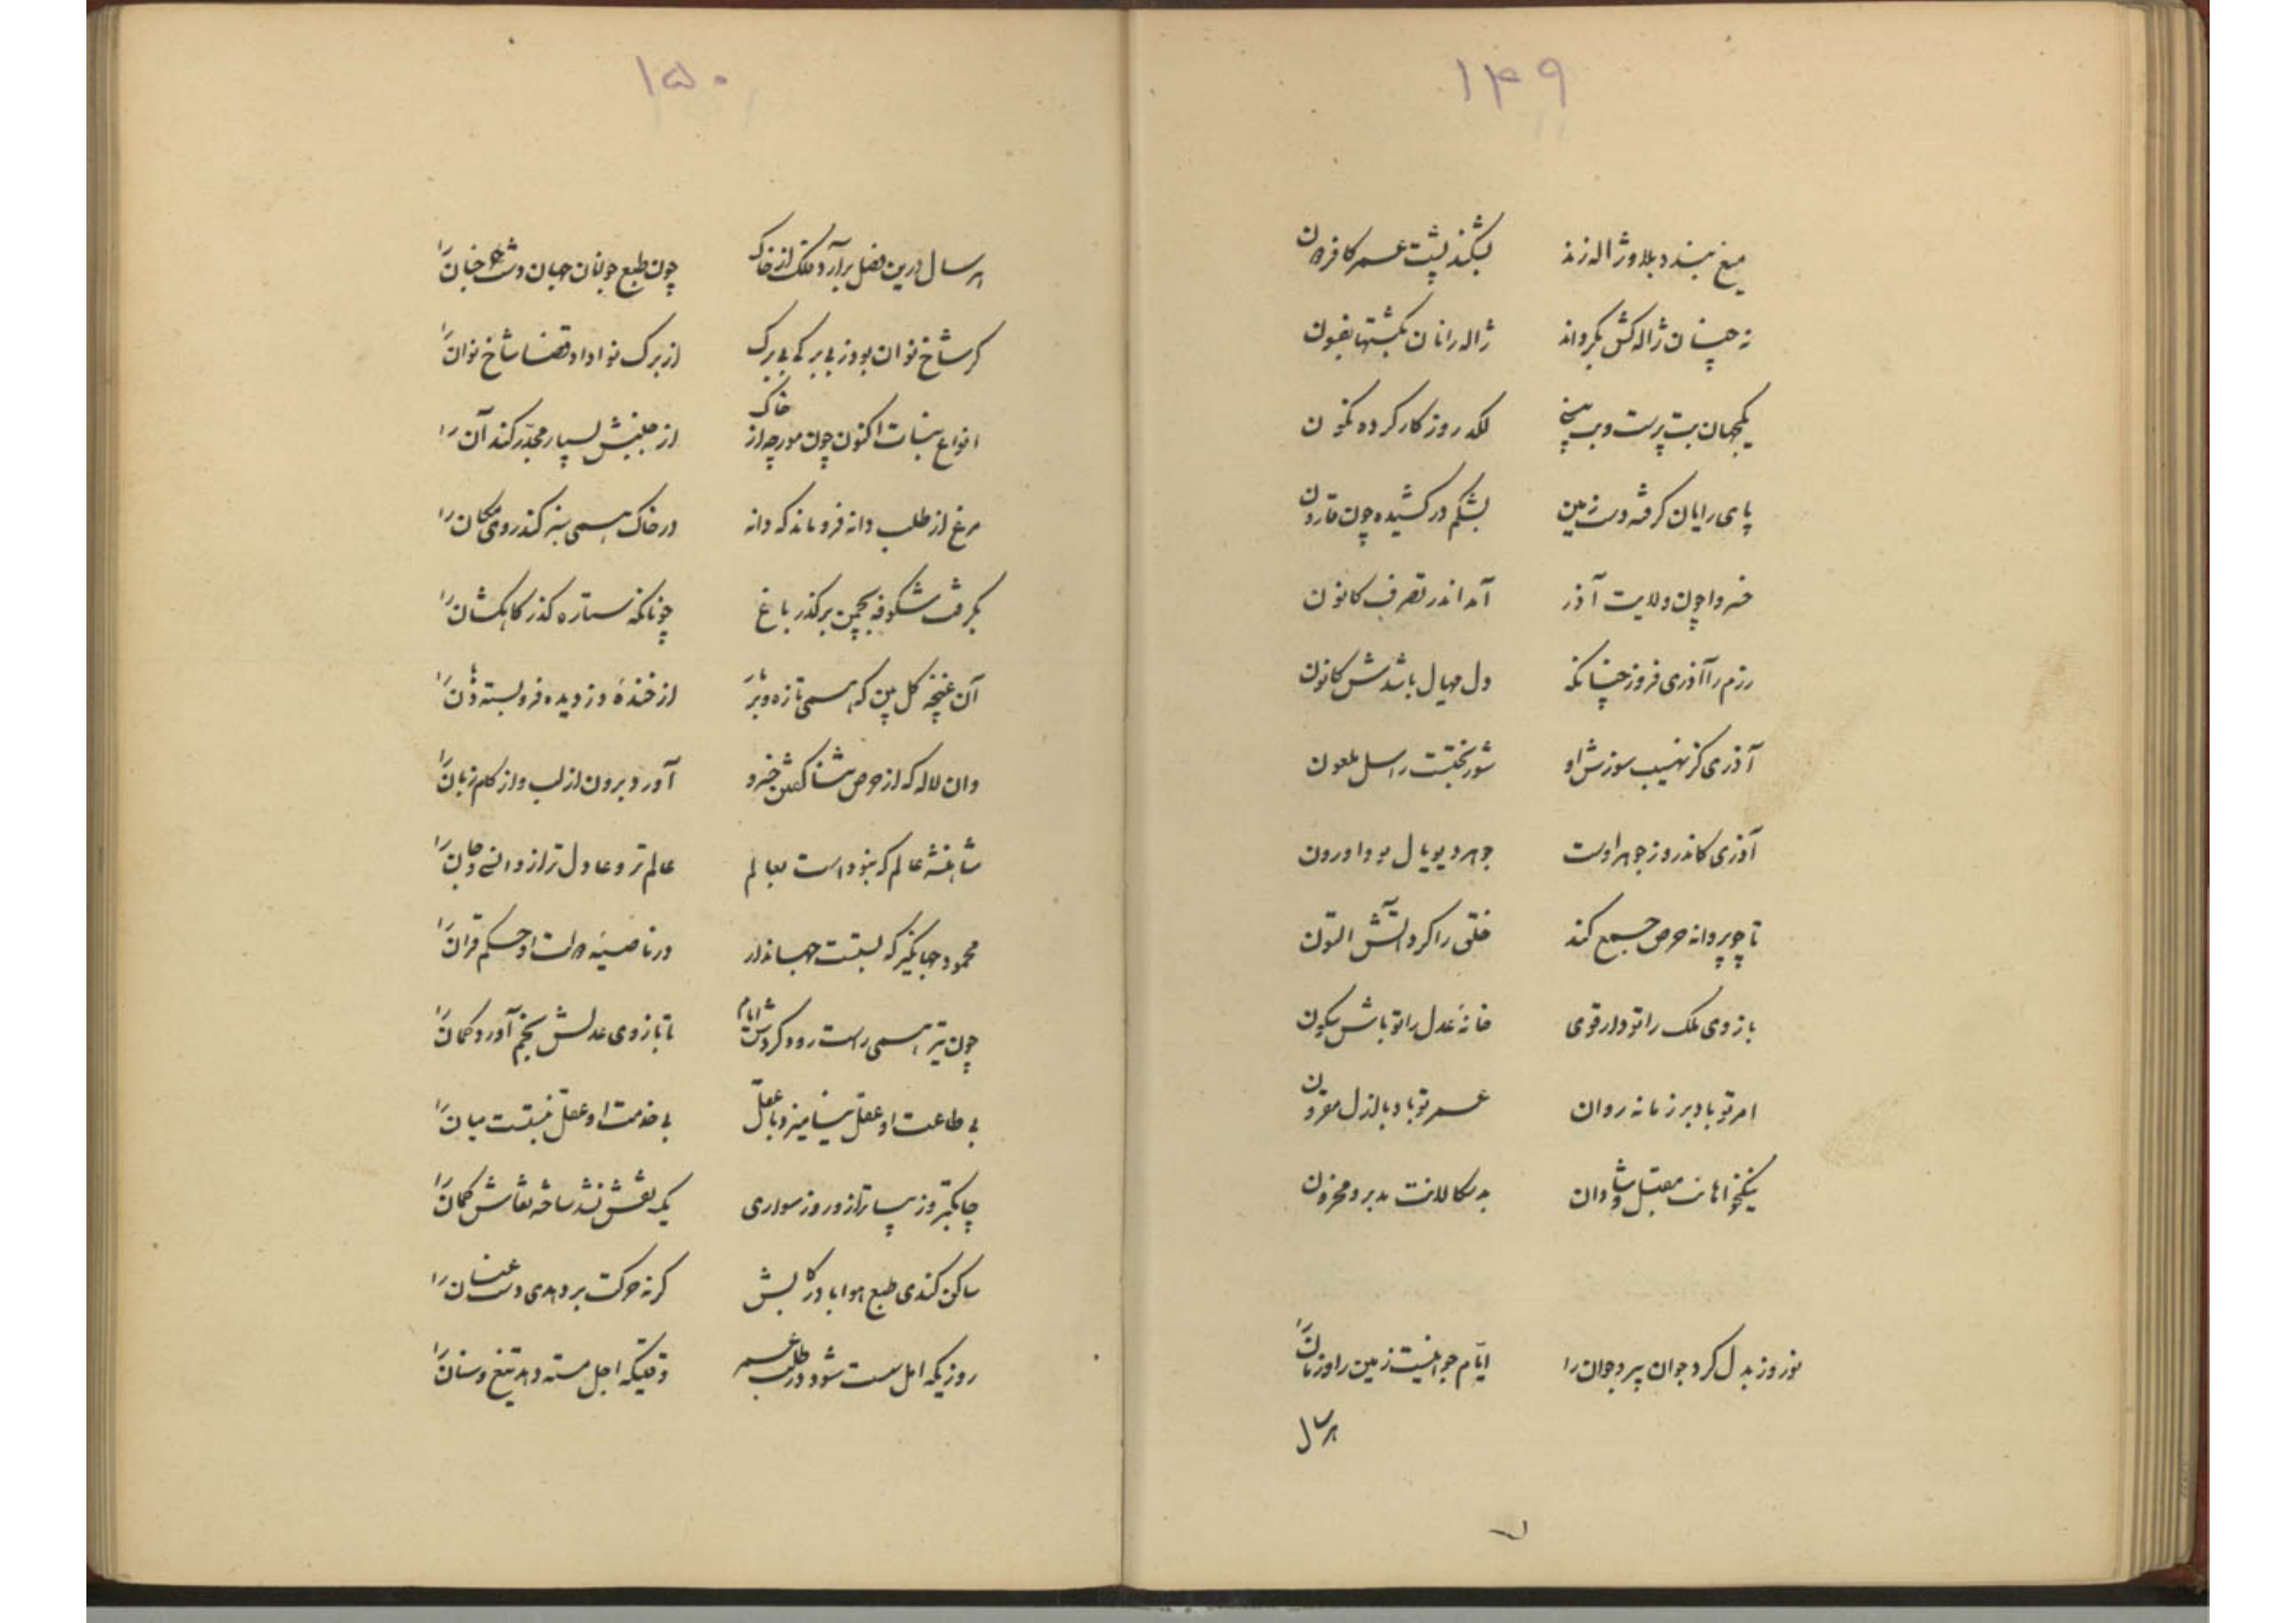 ۱۴۹
میغ بندد بلا و ژاله زند بشکند پشت عمر کافر دون
نه چنان ژاله کش بگرداند ژاله رانان بکشتها بفسون
یکجهان بت پرست و بت بینی لکد روزکار کرده نکون
پای رایان کرفته دست زمین بشکم در کشیده چون قارون
خسروا چون ولایت آذر آمد اندر تصرف کانون
رزم را آذری فروز چنانکه دل مهپال باشدش کانون
آذری کز نهیب سوزش او شور بختست راسل ملعون
آذری کاندرو ز جوهر اوست جوهر دیوپال بود اورون
تا چو پروانه حرص جمع کند خلق را کرد آتش التون
بازوی ملک را تو دار قوی خانهٔ عدل را تو باش ستون
امر تو باد بر زمانه روان عمر تو باد با ازل مقرون
نیکخواهانت مقبل و شادان بدسکالانت مدبر و محزون
نوروز بدل کرد جوان پیر و جوان را ایّام جوانیست زمین را و زمان را
هرسال
۱۵۰
هر سال درین فصل برآرد فلک از خاک چون طبع جوانان جهان دوست جنان را
کر شاخ نوان بود ز بی برکی بی برک از برک نوا داد قضا شاخ نوان را
انواع نبات اکنون چون مورچه از خاک از جنبش بسیار مجدّر کند آن را
مرغ از طلب دانه فرو ماند که دانه در خاک همی سبز کند روی مکان را
بکرفت شکوفه بچمن بر کذر باغ چونانکه ستاره کذر کاهکشان را
آن غنچه کل بین که همی نازد بر باد از خندهٔ دزدیده فرو بسته دهان را
وان لاله که از حرص ثنا کفتن خسرو آورد برون از لب و از کام زبان را
شاهنشه عالم که نبوداست بعالم عالم تر و عادل تر ازو انسی و جان را
محمود جهانکیر که بستست جهاندار در ناصیهٔ دولت او حکم قران را
چون تیر همی راست رود کردش ایام تا بازوی عدلش بخم آورد کمان را
بی طاعت او عقل نیامیزد با عقل بی خدمت او عقل نبستست میان را
چابکتر و زیباتر ازو روز سواری یک نقش نشد ساخته نقاش کمان را
ساکن کندی طبع هوا باد رکابش کر نه حرکت بر دهدی دست عنان را
روزیکه امل سست شود در طلب عمر وقتیکه اجل مسته دهد تیغ و سنان را